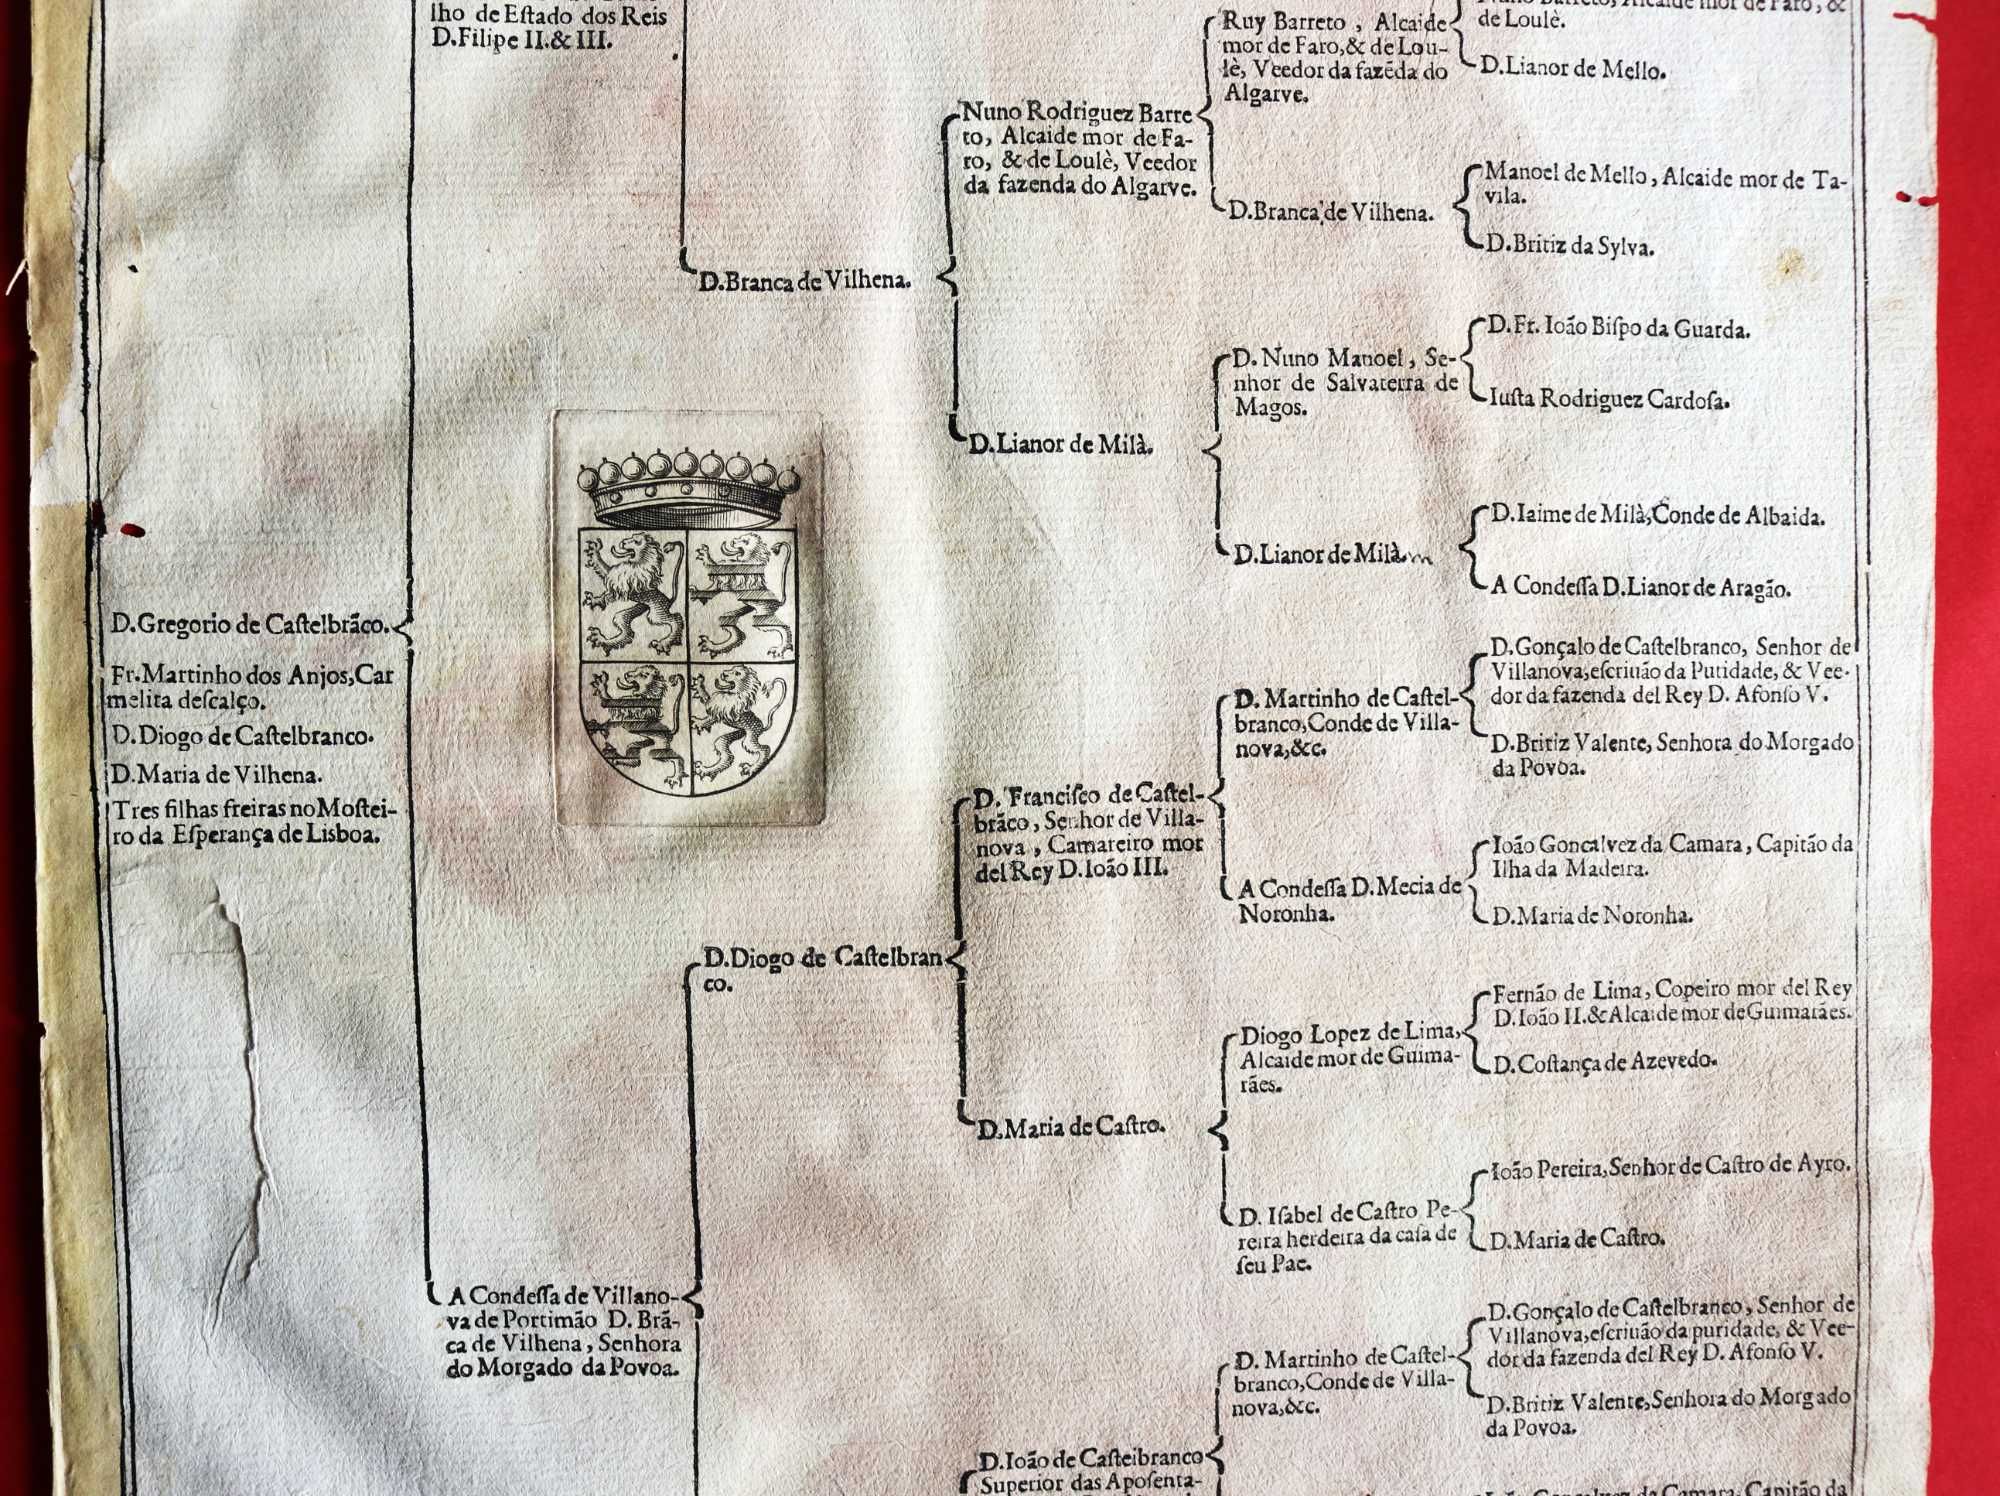 lho de Eſtado dos Reis
D.Filipe II.& III.
D.Gregorio de Caſtelbrãco.
Fr.Martinho dos Anjos,Car
melita deſcalço.
D.Diogo de Caſtelbranco.
D.Maria de Vilhena.
Tres filhas freiras no Moſtei-
ro da Eſperança de Lisboa.
A Condeſſa de Villano-
va de Portimão D. Brã-
ca de Vilhena, Senhora
do Morgado da Povoa.
D.Branca de Vilhena.
D.Diogo de Caſtelbran
co.
Nuno Rodriguez Barre
to, Alcaide mor de Fa-
ro, & de Loulè, Veedor
da fazenda do Algarve.
D.Lianor de Milà.
D. Franciſco de Caſtel-
brãco, Senhor de Villa-
nova, Camareiro mor
del Rey D.Ioão III.
D.Maria de Caſtro.
D.Ioão de Caſtelbranco
Superior das Apoſenta-
Ruy Barreto, Alcaide
mor de Faro,& de Lou-
lè, Veedor da fazẽda do
Algarve.
D.Branca de Vilhena.
D. Nuno Manoel, Se-
nhor de Salvaterra de
Magos.
D.Lianor de Milà.
D. Martinho de Caſtel-
branco,Conde de Villa-
nova,&c.
A Condeſſa D.Mecia de
Noronha.
Diogo Lopez de Lima,
Alcaide mor de Guima-
rães.
D. Iſabel de Caſtro Pe-
reira herdeira da caſa de
ſeu Pae.
D. Martinho de Caſtel-
branco,Conde de Villa-
nova,&c.
Nuno Barreto, Alcaide mor de Faro, &
de Loulè.
D.Lianor de Mello.
Manoel de Mello, Alcaide mor de Ta-
vila.
D.Britiz da Sylva.
D.Fr. Ioão Biſpo da Guarda.
Iuſta Rodriguez Cardoſa.
D.Iaime de Milà,Conde de Albaida.
A Condeſſa D.Lianor de Aragão.
D.Gonçalo de Caſtelbranco, Senhor de
Villanova,eſcriuão da Puridade, & Vee-
dor da fazenda del Rey D. Afonſo V.
D.Britiz Valente, Senhora do Morgado
da Povoa.
Ioão Goncalvez da Camara, Capitão da
Ilha da Madeira.
D.Maria de Noronha.
Fernão de Lima, Copeiro mor del Rey
D.Ioão II.& Alcaide mor de Guimarães.
D.Coſtança de Azevedo.
Ioão Pereira, Senhor de Caſtro de Ayro.
D.Maria de Caſtro.
D.Gonçalo de Caſtelbranco, Senhor de
Villanova,eſcriuão da puridade, & Vee-
dor da fazenda del Rey D. Afonſo V.
D.Britiz Valente,Senhora do Morgado
da Povoa.
da Camara, Capitão da